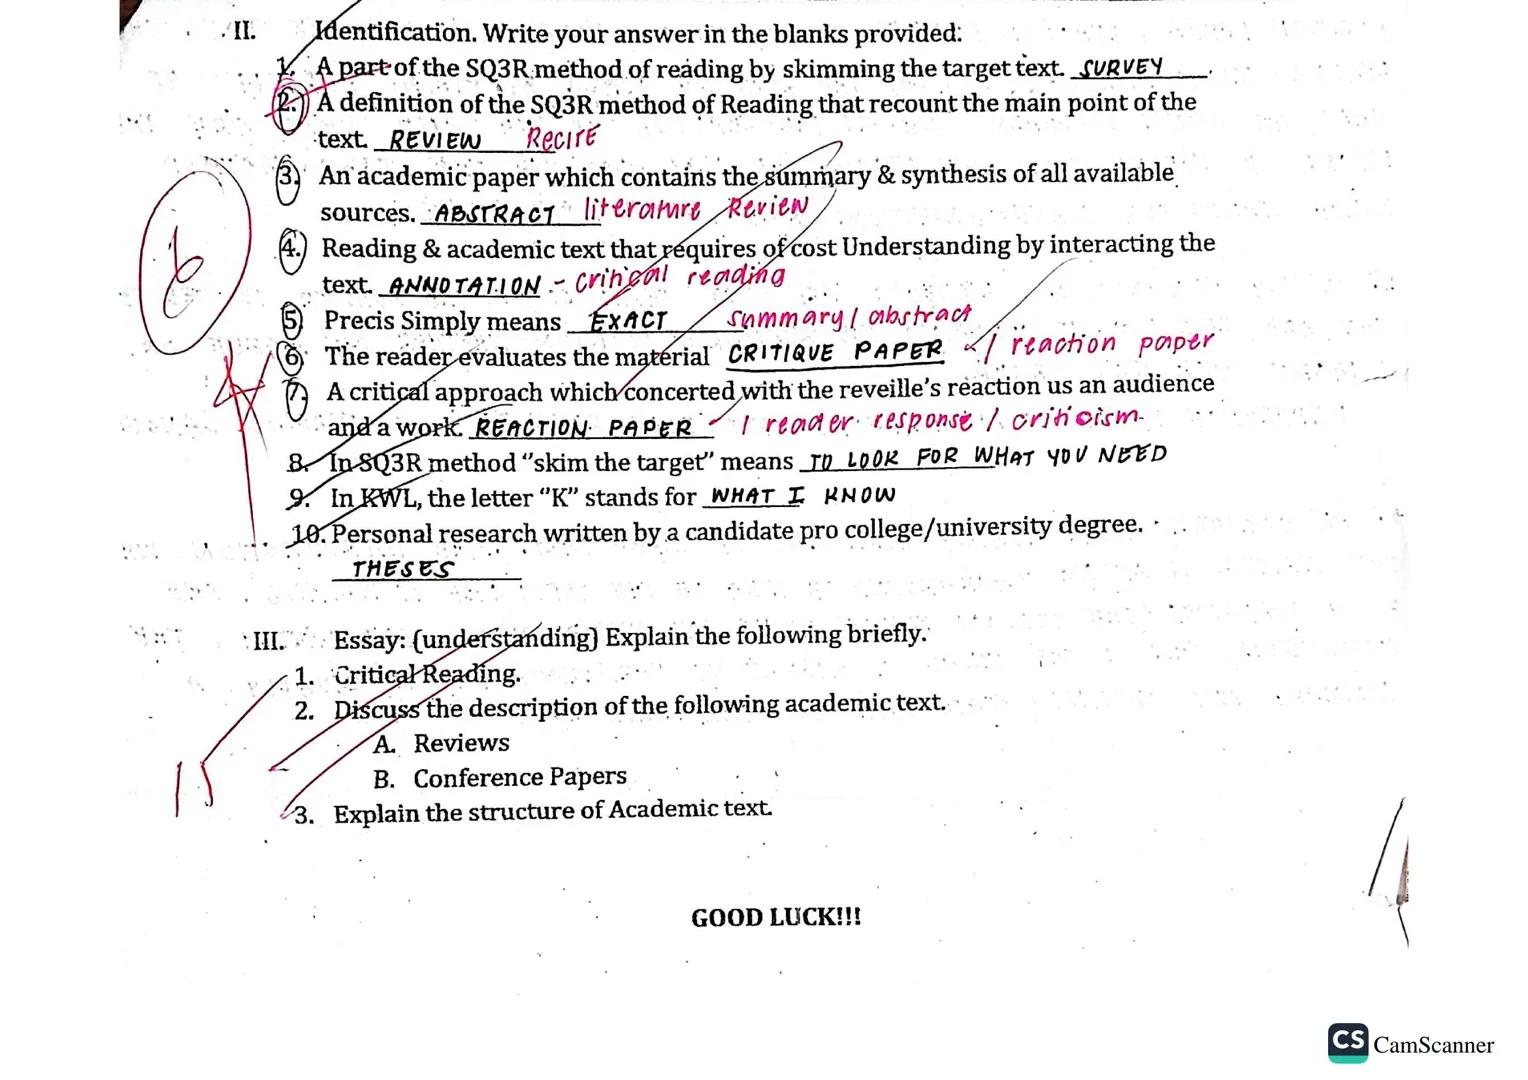 II. Identification. Write your answer in the blanks provided:
1. A part of the SQ3R method of reading by skimming the target text. SURVEY
2. A definition of the SQ3R method of Reading that recount the main point of the
text. REVIEW Recite
3. An academic paper which contains the summary & synthesis of all available
sources. ABSTRACT literature Review
4. Reading & academic text that requires of cost Understanding by interacting the
text. ANNOTATION - critical reading
5 Precis Simply means EXACT summary / abstract
6 The reader evaluates the material CRITIQUE PAPER / reaction paper
7. A critical approach which concerted with the reveille's reaction us an audience
and a work. REACTION PAPER / reader response / criticism
8. In SQ3R method "skim the target" means TO LOOK FOR WHAT YOU NEED
9. In KWL, the letter "K" stands for WHAT I KNOW
10. Personal research written by a candidate pro college/university degree.
THESES
6
III. Essay: (understanding) Explain the following briefly.
1. Critical Reading.
2. Discuss the description of the following academic text.
A. Reviews
B. Conference Papers
15
3. Explain the structure of Academic text.
GOOD LUCK!!!
CS CamScanner